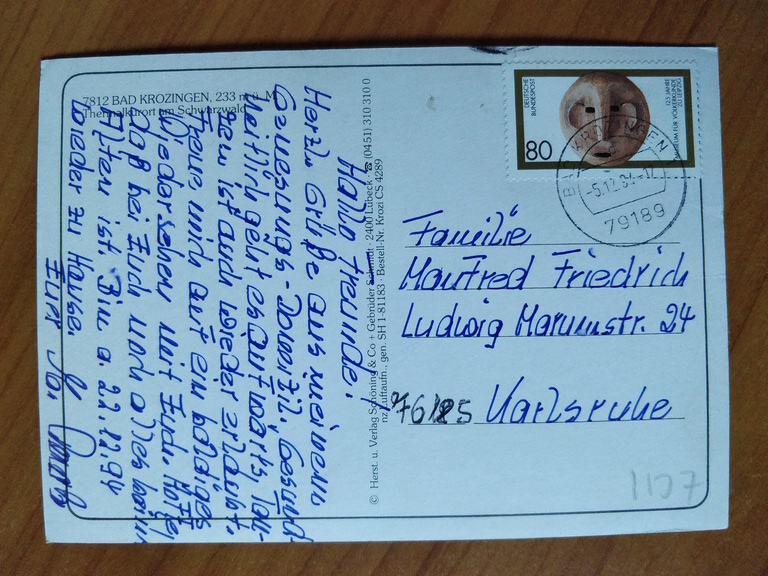 7812 BAD KROZINGEN, 233 m ü. M.
Thermalkurort am Schwarzwald
Hallo Freunde!
Herzl. Grüße aus meinem
Genesungs-Domizil. Gesund-
heitlich geht es aufwärts, Tau-
gen ist auch wieder erlaubt.
Freue mich auf ein baldiges
Wiedersehen mit Euch. Hoffe,
daß bei Euch noch alles beim
Alten ist. Bin a. 22.12.94
wieder zu Hause.
Euer
© Herst. u. Verlag Schöning & Co + Gebrüder Schmidt · 2400 Lübeck · ☎ (0451) 310 310 0
Luftaufn., gen. SH 1-81183 · Bestell-Nr. Krozi CS 4289
DEUTSCHE
BUNDESPOST
80
125 JAHRE
MUSEUM FÜR VÖLKERKUNDE
ZU LEIPZIG
BAD KROZINGEN
-5.12.94-17
79189
Familie
Manfred Friedrich
Ludwig Marumstr. 24
76185 Karlsruhe